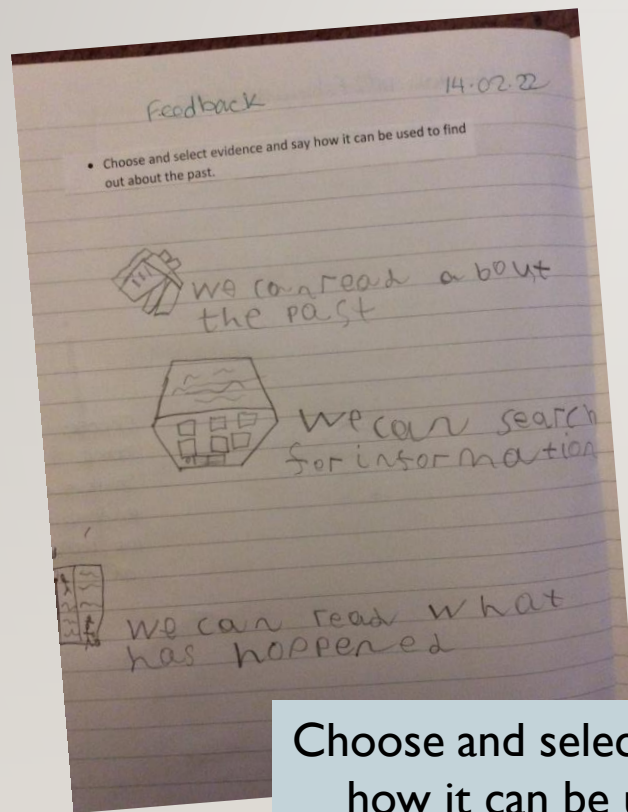 Feedback 14.02.22
• Choose and select evidence and say how it can be used to find
out about the past.
we can read about
the past
we can search
for information
we can read what
has hoppened
Choose and selec
how it can be